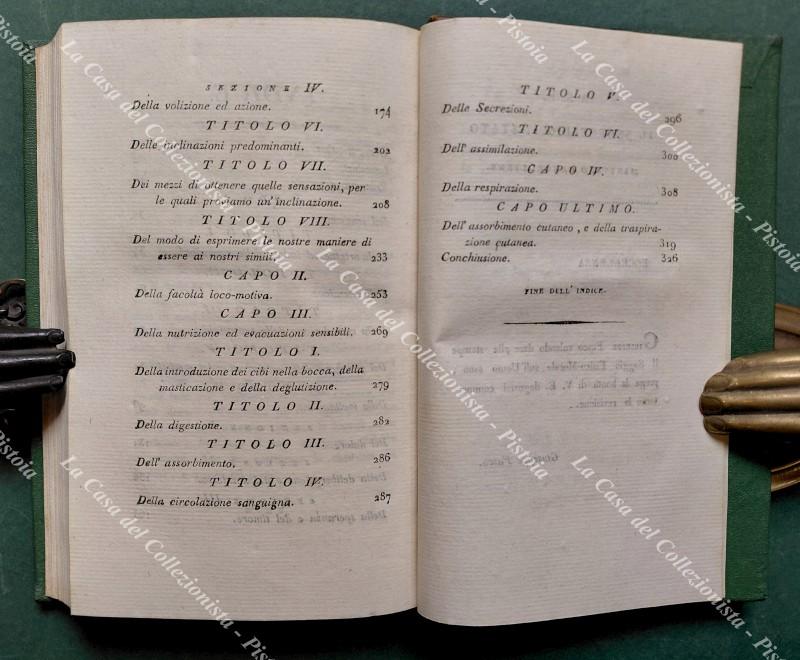 SEZIONE IV.
Della volizione ed azione. 174
TITOLO VI.
Delle inclinazioni predominanti. 202
TITOLO VII.
Dei mezzi di ottenere quelle sensazioni, per
le quali proviamo un' inclinazione. 208
TITOLO VIII.
Del modo di esprimere le nostre maniere di
essere ai nostri simili. 233
CAPO II.
Della facoltà loco-motiva. 253
CAPO III.
Della nutrizione ed evacuazioni sensibili. 269
TITOLO I.
Della introduzione dei cibi nella bocca, della
masticazione e della deglutizione. 279
TITOLO II.
Della digestione. 282
TITOLO III.
Dell' assorbimento. 286
TITOLO IV.
Della circolazione sanguigna. 287
TITOLO V.
Delle Secrezioni. 296
TITOLO VI.
Dell' assimilazione. 306
CAPO IV.
Della respirazione. 308
CAPO ULTIMO.
Dell' assorbimento cutaneo, e della traspira-
zione cutanea. 319
Conchiusione. 326
FINE DELL' INDICE.
La Casa del Collezionista - Pistoia